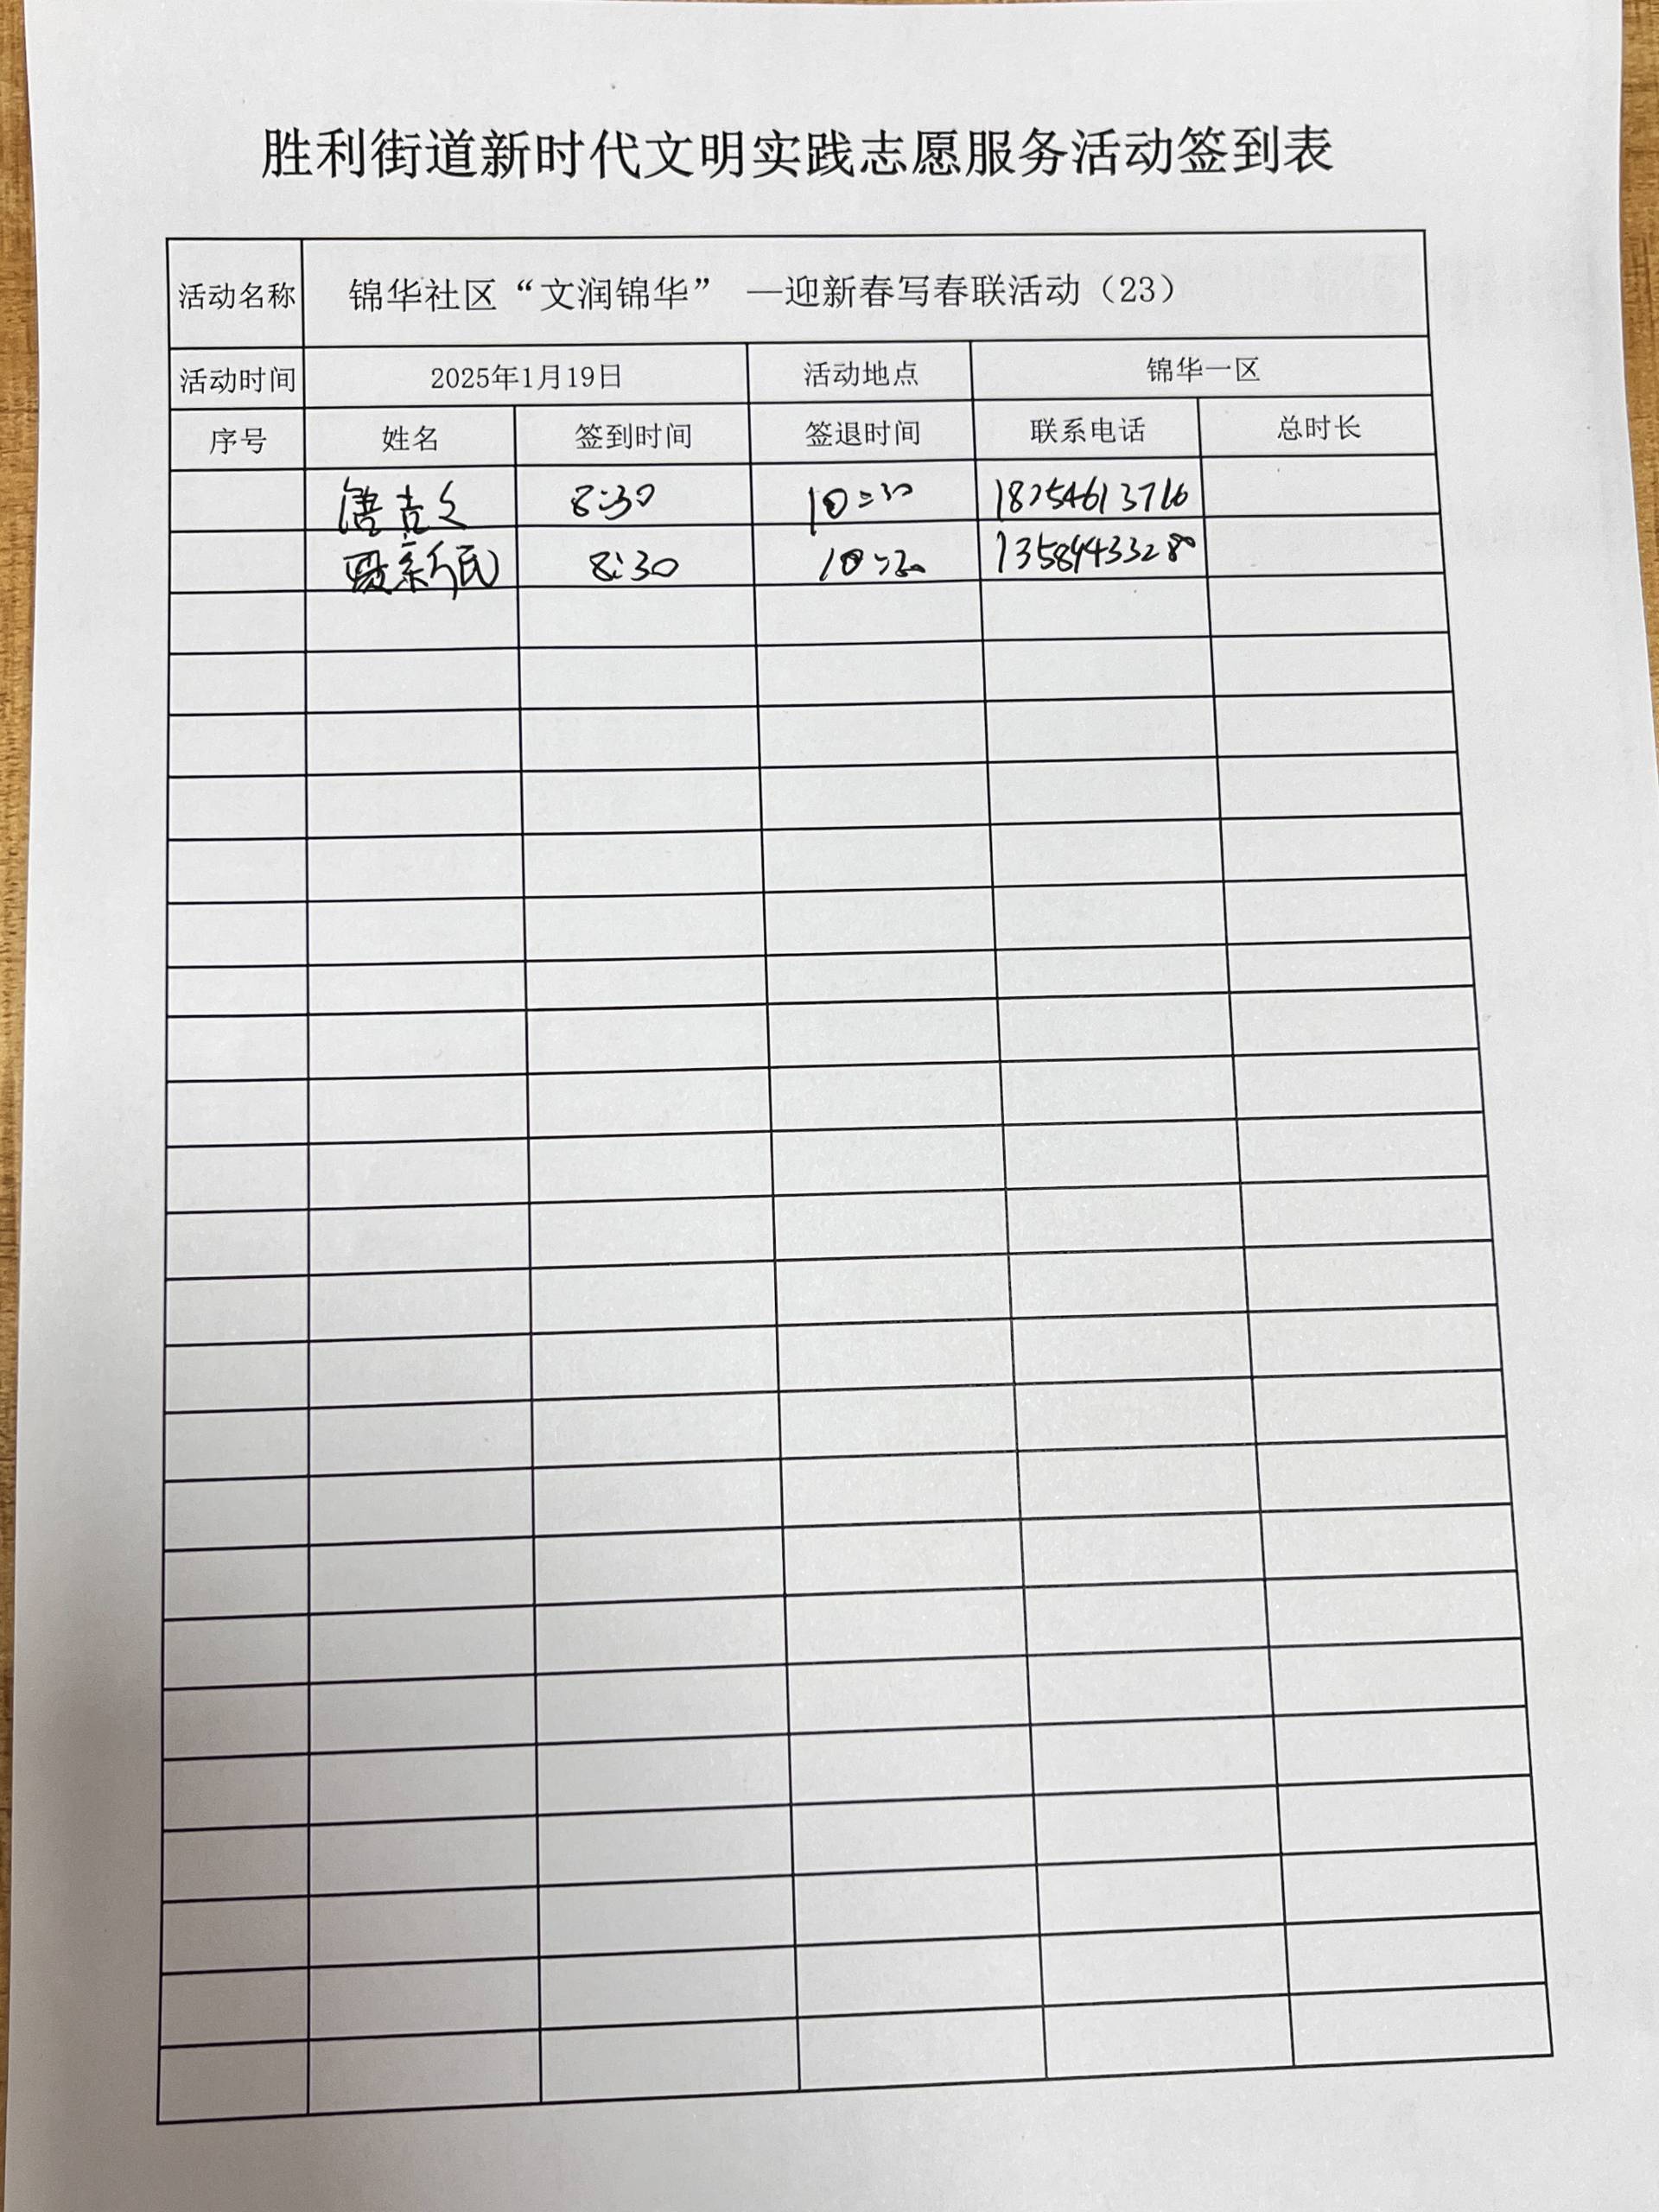 胜利街道新时代文明实践志愿服务活动签到表
活动名称 锦华社区“文润锦华” —迎新春写春联活动（23）
活动时间 2025年1月19日 活动地点 锦华一区
序号 姓名 签到时间 签退时间 联系电话 总时长
8:30 10:30 18254613716
新民 8:30 10:30 13589433280